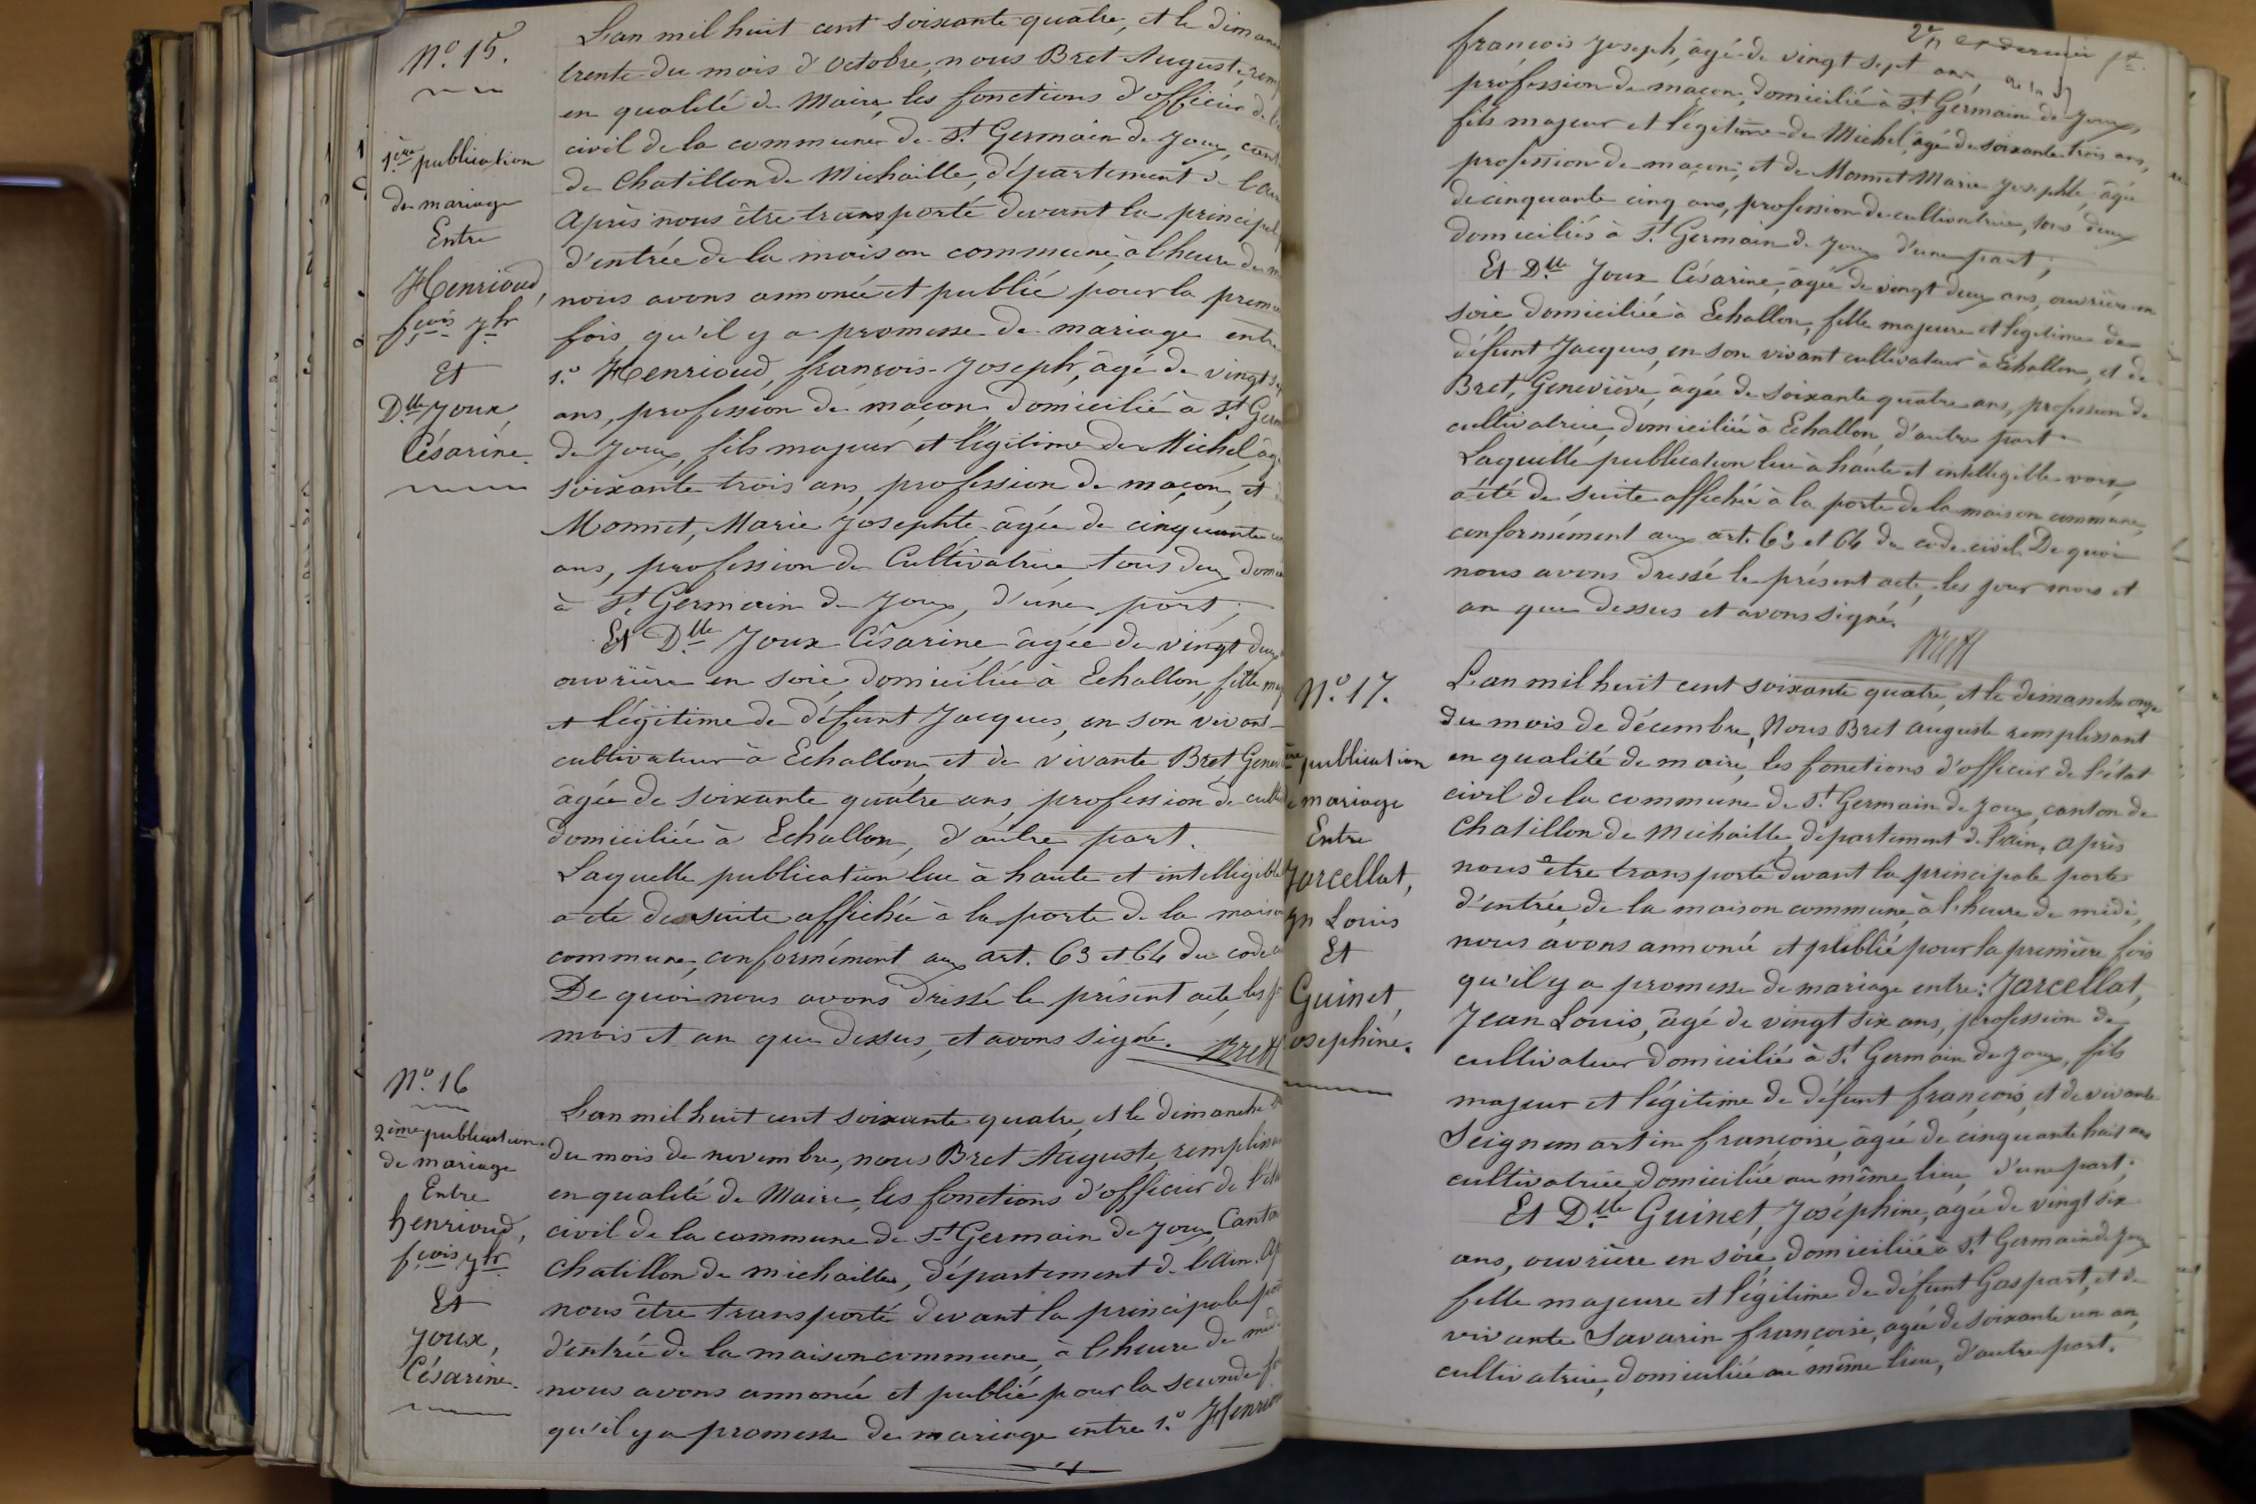 N.° 15.
1.ère publication
de mariage
Entre
Henrioud,
f.çois Jh
Et
D.lle Joux,
Césarine.
L'an mil huit cent soixante-quatre, et le diman
trente du mois d'Octobre, nous Bret Auguste, remp
en qualité de Maire, les fonctions d'officier de l'é
civil de la commune de St. Germain de Joux, cant
de Chatillon de Michaille, département de l'Ain
Après nous être transporté devant la principale
d'entrée de la maison commune, à l'heure de m
nous avons annoncé et publié pour la premi
fois, qu'il y a promesse de mariage entre
1.° Henrioud, françois-Joseph, âgé de vingt sep
ans, profession de maçon, domicilié à St. Germ
de Joux, fils majeur et légitime de Michel, âg
soixante trois ans, profession de maçon, et
Monnet, Marie Josephte âgée de cinquante
ans, profession de Cultivatrice, tous deux domi
à St. Germain de Joux, d'une part;
Et D.lle Joux Césarine âgée de vingt deux
ouvrière en soie, domiciliée à Echallon, fille maj
et légitime de défunt Jacques, en son vivant
cultivateur à Echallon, et de vivante Bret, Genev
âgée de soixante quatre ans, profession de culti
domiciliée à Echallon, d'autre part.
Laquelle publication lue à haute et intelligible
a été de suite affichée à la porte de la maison
commune, conformément aux art. 63 et 64 du code
De quoi nous avons dressé le présent acte, les jo
mois et an que dessus, et avons signé. Bret
N.° 16
2ème publication
de mariage
Entre
henrioud,
f.çois Jh.
Et
Joux,
Césarine.
L'an mil huit cent soixante quatre, et le dimanche
du mois de novembre, nous Bret Auguste, rempliss
en qualité de Maire, les fonctions d'officier de l'éta
civil de la commune de St. Germain de Joux, Canton
Chatillon de michaille, département de l'ain. Ap
nous être transporté devant la principale por
d'entrée de la maison commune, à l'heure de mid
nous avons annoncé et publié pour la seconde fo
qu'il y a promesse de mariage entre 1.° Henriou
2e et dernier
françois Joseph, âgé de vingt sept ans,
profession de maçon, domicilié à St. Germain de Joux,
fils majeur et légitime de Michel, âgé de soixante trois ans,
profession de maçon, et de Monnet Marie Josephte, âgée
de cinquante cinq ans, profession de cultivatrice, tous deux
domiciliés à St. Germain de Joux d'une part;
Et D.lle Joux Césarine, âgée de vingt deux ans, ouvrière en
soie, domiciliée à Echallon, fille majeure et légitime de
défunt Jacques, en son vivant cultivateur à Echallon, et de
Bret, Geneviève, âgée de soixante quatre ans, profession de
cultivatrice, domiciliée à Echallon, d'autre part.
Laquelle publication lue à haute et intelligible voix,
a été de suite affichée à la porte de la maison commune,
conformément aux arts 63 et 64 du code civil. De quoi
nous avons dressé le présent acte, les jour mois et
an que dessus et avons signé.
Bret
N.° 17.
publication
mariage
Entre
Jarcellat,
Jn Louis
Et
Guinet,
osephine.
L'an mil huit cent soixante quatre, et le dimanche onze
du mois de décembre, Nous Bret auguste remplissant
en qualité de maire, les fonctions d'officier de l'état
civil de la commune de St. Germain de Joux, canton de
Chatillon de Michaille, département de l'ain, après
nous être transporté devant la principale porte
d'entrée de la maison commune, à l'heure de midi,
nous avons annoncé et publié pour la première fois
qu'il y a promesse de mariage entre: Jarcellat,
Jean Louis, âgé de vingt six ans, profession de
cultivateur domicilié à St. Germain de Joux, fils
majeur et légitime de défunt françois, et de vivante
Seignemartin françoise, âgée de cinquante huit ans
cultivatrice, domiciliée au même lieu, d'une part;
Et D.lle Guinet, Joséphine, âgée de vingt six
ans, ouvrière en soie, domiciliée à St. Germain de Joux
fille majeure et légitime de défunt Gaspart, et de
vivante Savarin françoise, âgée de soixante un an,
cultivatrice, domiciliée au même lieu, d'autre part.